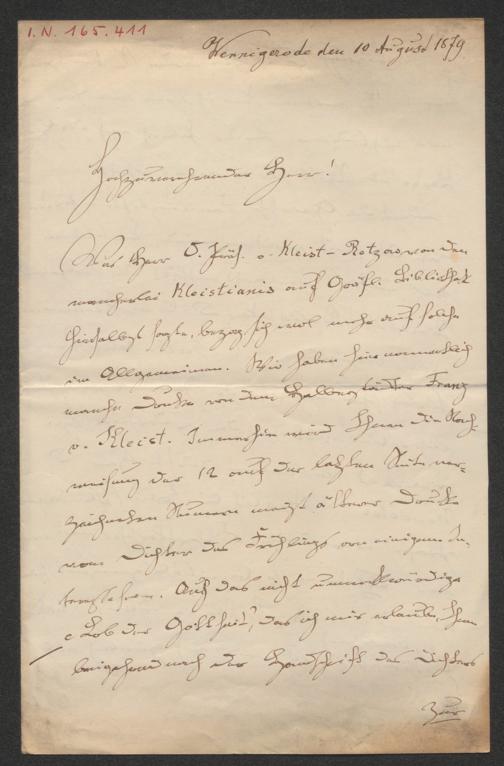 I.N. 165.411
Wernigerode den 10 August 1879.
Hochzuverehrender Herr!
Was Herr O. Präs. v. Kleist-Retzow von den
mancherlei Kleistianis auf Gräfl. Bibliothek
hierselbst sagte, bezog sich wol mehr auf solche
im Allgemeinen. Wir haben hier namentlich
manche Drucke von dem Franz
v. Kleist. Immerhin wird Ihnen die Nach-
weisung der 12 auf der letzten Seite ver-
zeichneten Nummern meist älterer Drucke
vom Dichter des Frühlings von einigem In-
teresse sein. Auch das nicht unmerkwürdige
"Lob der Gottheit", das ich mir erlaube, Ihnen
beigehend nach der Handschrift des Dichters
zur